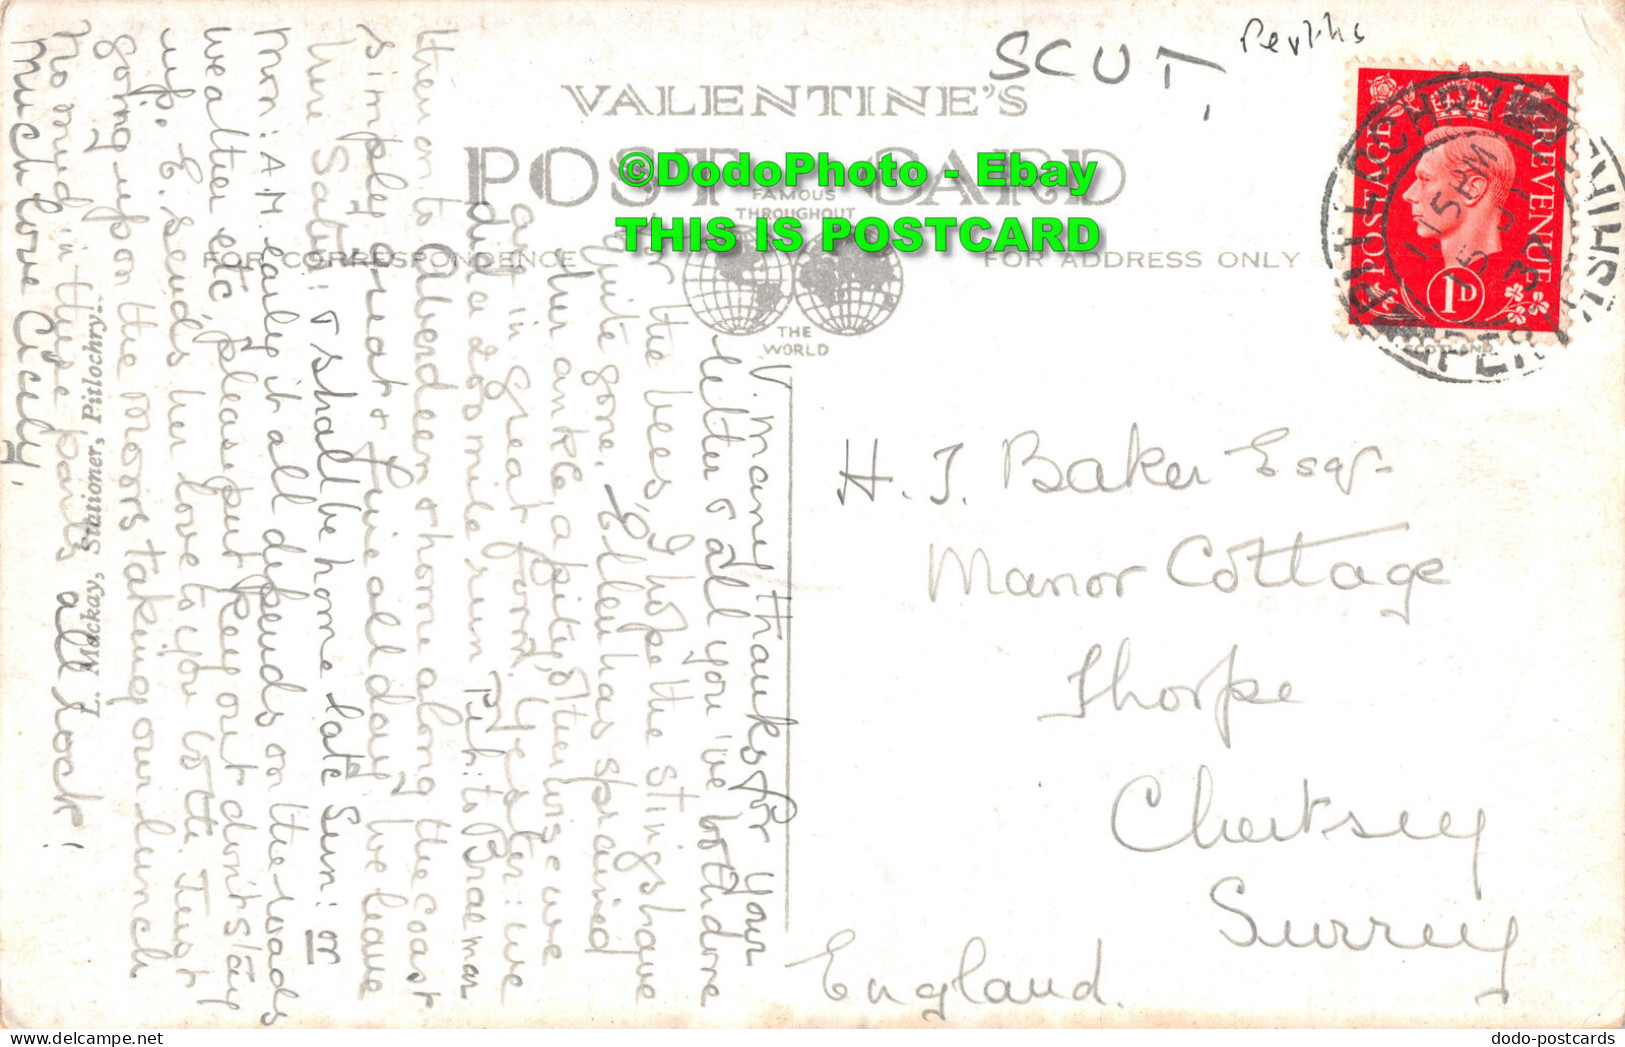 SCUT,
Perths
VALENTINE'S
POST CARD
FAMOUS
THROUGHOUT
THE
WORLD
FOR CORRESPONDENCE
FOR ADDRESS ONLY
©DodoPhoto - Ebay
THIS IS POSTCARD
POSTAGE
REVENUE
1D
PITLOCHRY
PERTHSHIRE
SCOTLAND
H. J. Baker Esqr
Manor Cottage
Thorpe
Chertsey
Surrey
England.
V. many thanks for your
letter & all you've both done
for the bees, I hope the stings have
quite gone. Ellen has sprained
her ankle a bit, otherwise we
are in great form. Yester: we
did a 200 mile run Pit: to Braemar
then on to Aberdeen & home along the coast
simply great & fine all day. We leave
here Sat: & shall be home late Sun: or
Mon: A.M. early it all depends on the roads
weather etc, please put key out don't stay
up. E. sends her love to you both. Just
going up on the moors taking our lunch
No mud in these parts all rock!
Much love Cicely.
L. Mackay, Stationer, Pitlochry.
dodo-postcards